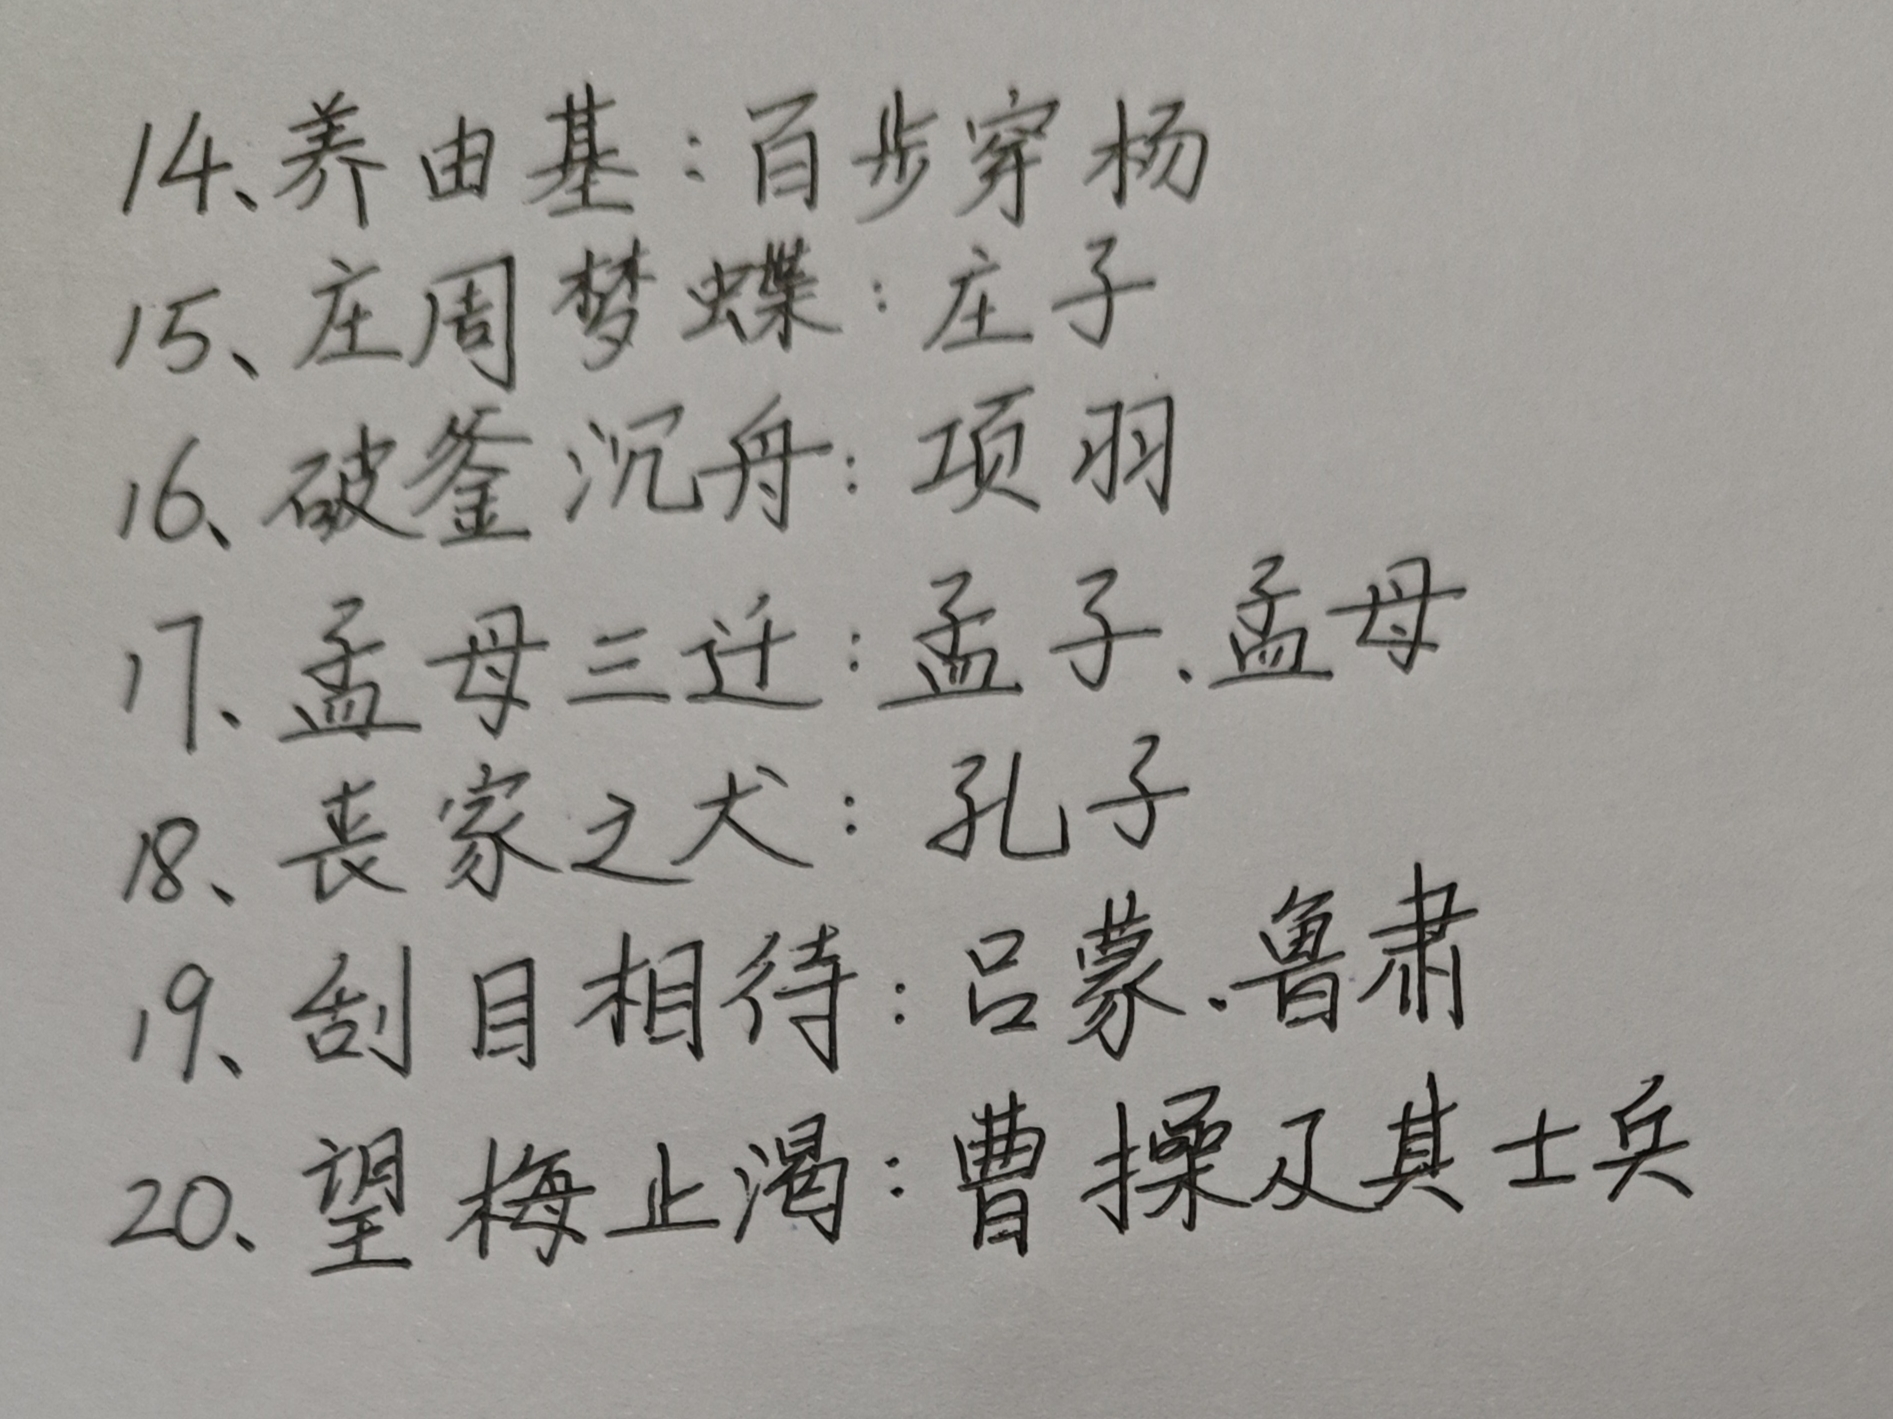 14、养由基：百步穿杨
15、庄周梦蝶：庄子
16、破釜沉舟：项羽
17、孟母三迁：孟子、孟母
18、丧家之犬：孔子
19、刮目相待：吕蒙、鲁肃
20、望梅止渴：曹操及其士兵